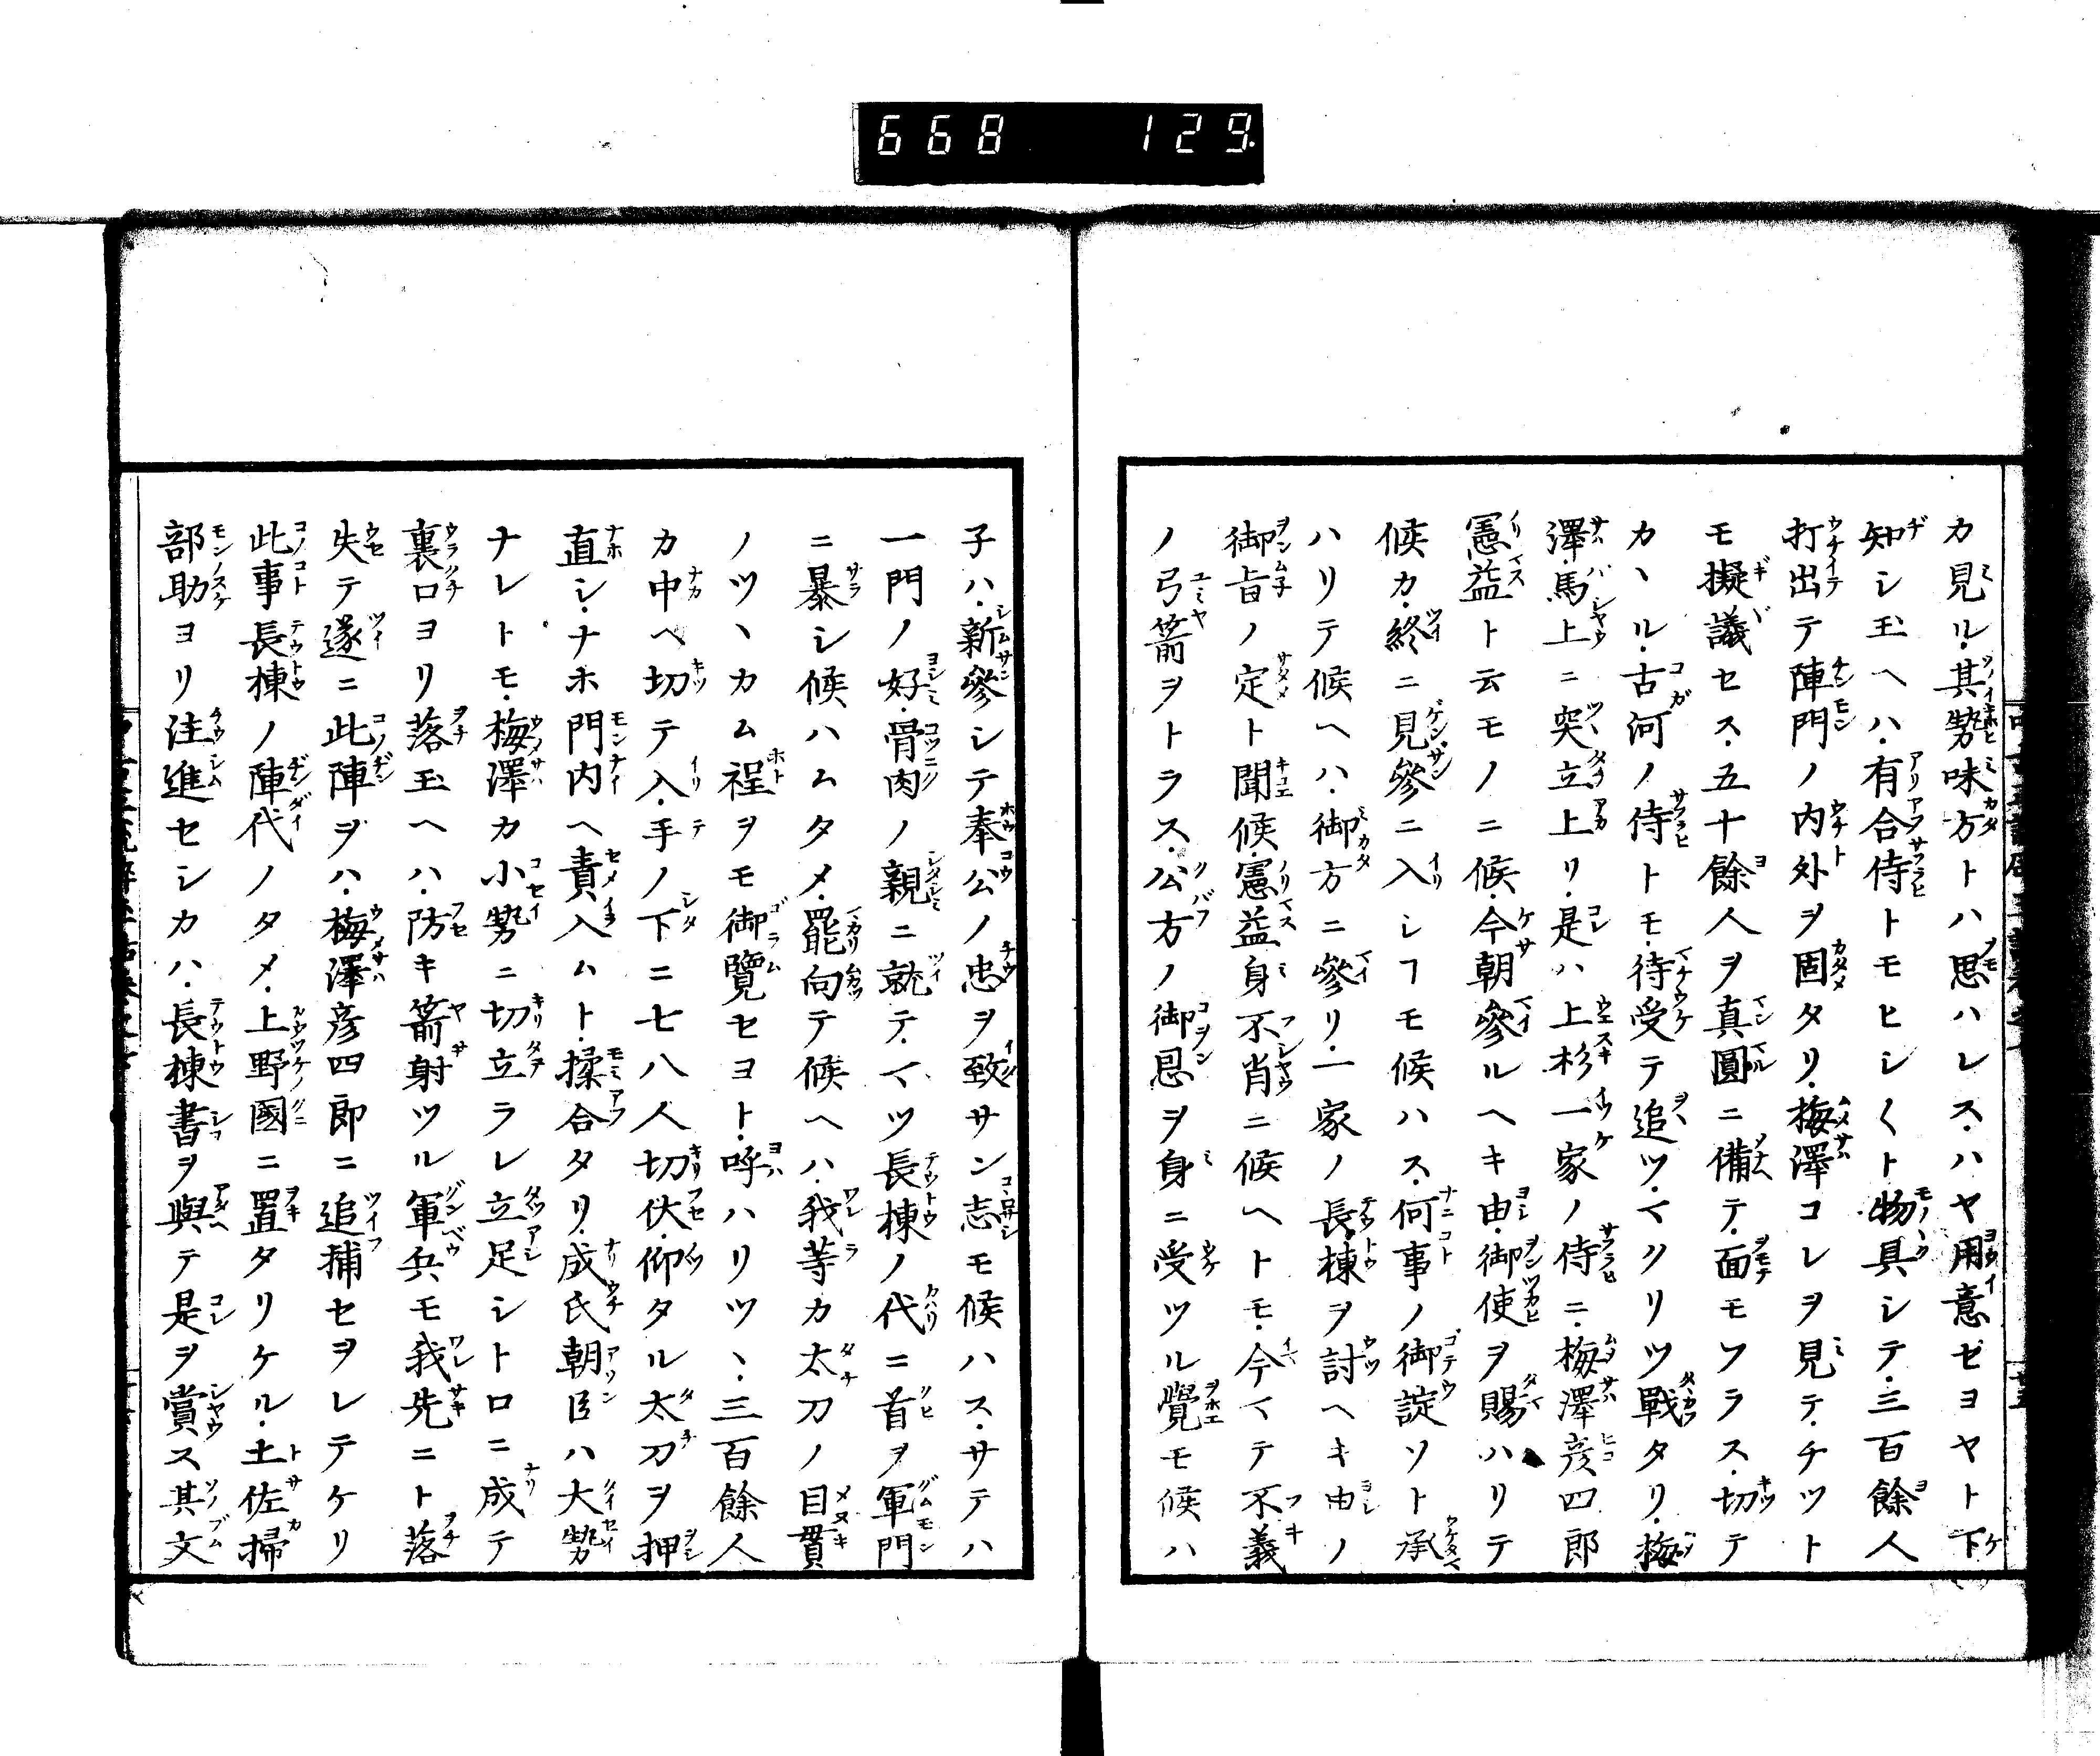 668 129
カ見ル・其勢味方トハ思ハレス・ハヤ用意セヨヤト下
知シ玉ヘハ・有合侍トモヒシ〱ト物具シテ・三百餘人
打出テ陣門ノ内外ヲ固タリ・梅澤コレヲ見テ・チツト
モ擬議セス・五十餘人ヲ真圓ニ備テ・面モフラス・切テ
カヽル・古河ノ侍トモ・待受テ追ツ・マクリツ戰タリ・梅
澤・馬上ニ突立上リ・是ハ上杉一家ノ侍ニ・梅澤彦四郎
憲益ト云モノニ候・今朝參ルヘキ由・御使ヲ賜ハリテ
候カ・終ニ見參ニ入シヿモ候ハス・何事ノ御諚ソト承
ハリテ候ヘハ・御方ニ參リ・一家ノ長棟ヲ討ヘキ由ノ
御旨ノ定ト聞候・憲益身不肖ニ候ヘトモ・今マテ不義
ノ弓箭ヲトラス・公方ノ御恩ヲ身ニ受ツル覺モ候ハ
子ハ・新參シテ奉公ノ忠ヲ致サン志モ候ハス・サテハ
一門ノ好・骨肉ノ親ニ就テ・マツ長棟ノ代ニ首ヲ軍門
ニ暴シ候ハムタメ・罷向テ候ヘハ・我等カ太刀ノ目貫
ノツヽカム程ヲモ御覽セヨト・呼ハリツヽ・三百餘人
カ中ヘ切テ入・手ノ下ニ七八人切伏・仰タル太刀ヲ押
直シ・ナホ門内ヘ責入ムト・揉合タリ・成氏朝臣ハ大勢
ナレトモ・梅澤カ小勢ニ切立ラレ立足シトロニ成テ
裏口ヨリ落玉ヘハ・防キ箭射ツル軍兵モ我先ニト落
失テ遂ニ此陣ヲハ・梅澤彦四郎ニ追捕セヲレテケリ
此事長棟ノ陣代ノタメ・上野國ニ置タリケル・土佐掃
部助ヨリ注進セシカハ・長棟書ヲ與テ是ヲ賞ス其文